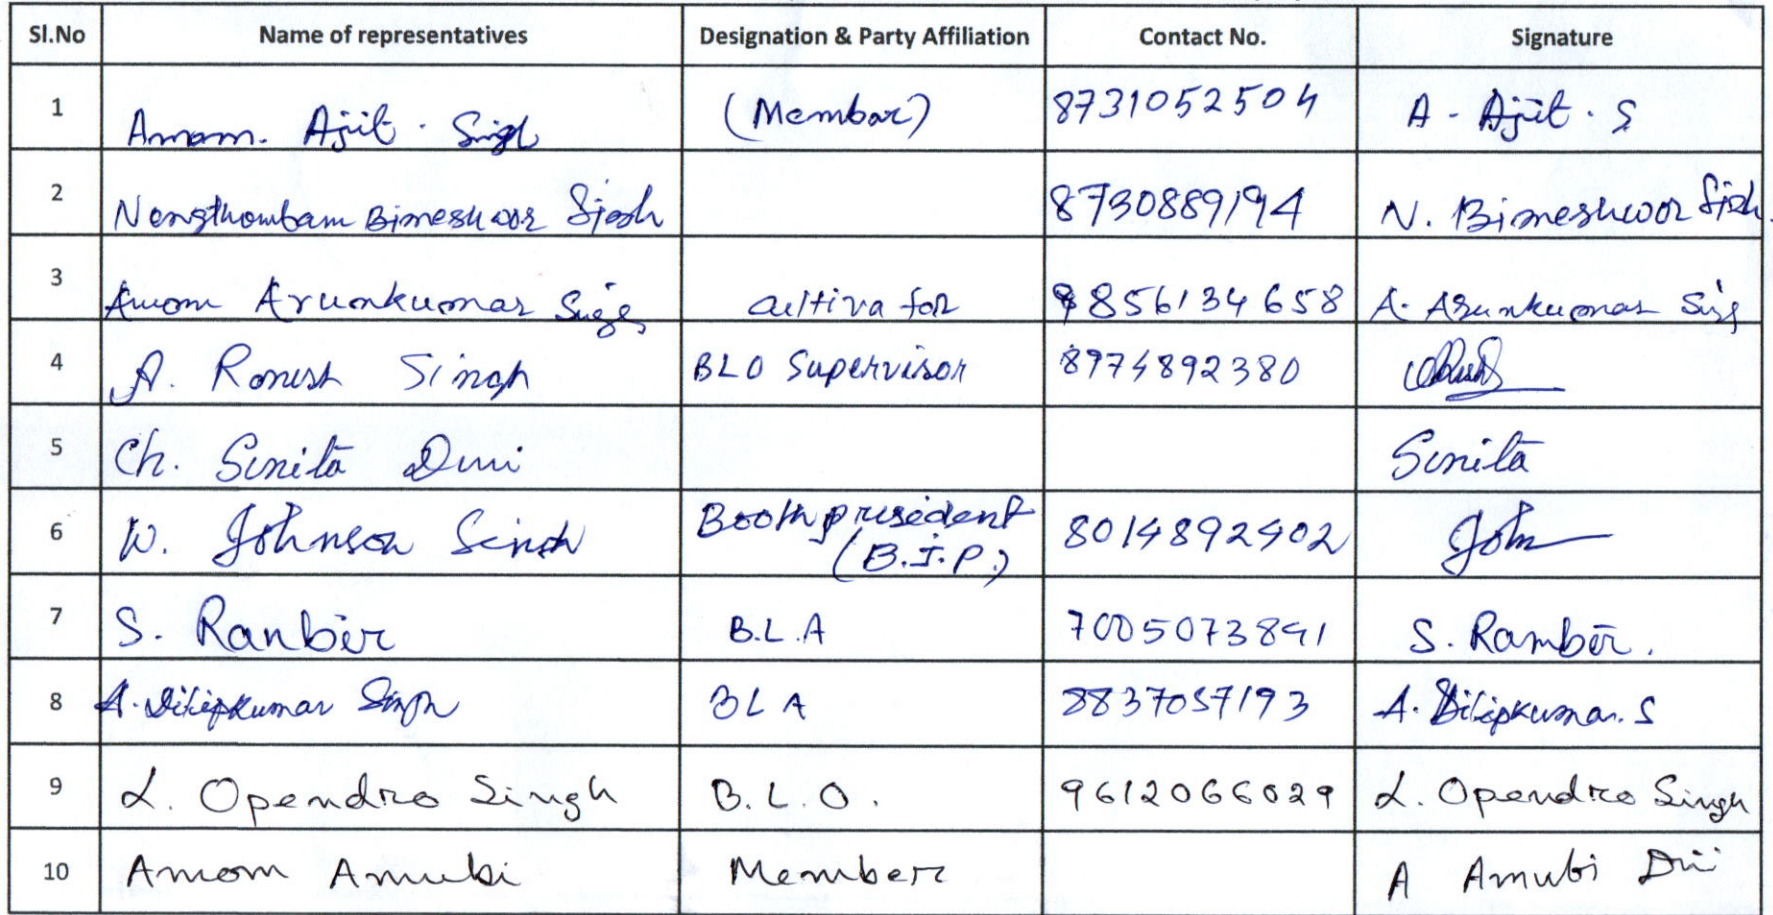 Sl.No Name of representatives Designation & Party Affiliation Contact No. Signature
1 Amom. Ajit. Singh (Membar) 8731052504 A - Ajit. S
2 Nongthombam Bimeshwor Singh 8730889194 N. Bimeshwor Singh.
3 Amom Arunkumar Singh cultivator 9856134658 A. Arunkumar Sing
4 A. Ronesh Singh BLO Supervisor 8974892380
5 Ch. Sunita Devi Sunita
6 W. Johnson Singh Booth president (B.J.P.) 8014892402 John
7 S. Ranbir B.L.A 7005073891 S. Rambir.
8 A. Dilipkumar Singh BLA 8837057193 A. Dilipkumar. S
9 L. Opendro Singh B.L.O. 9612066029 L. Opendro Singh
10 Amom Amubi Member A Amubi Devi